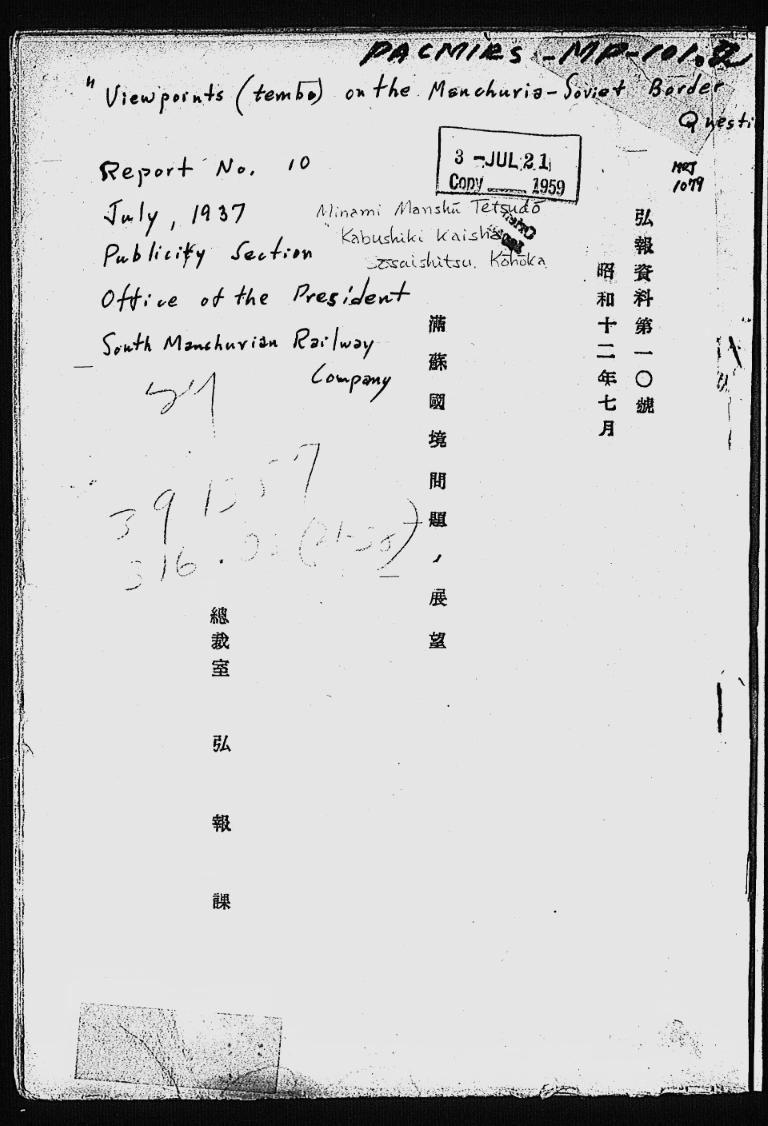 PACMIRS - MP-101.
" Viewpoints (tembō) on the Manchuria-Soviet Border
Questi
Report No. 10
3 - JUL 21
Copy 1959
MOJ
1079
July, 1937
Minami Manshū Tetsudō
Publicity Section
Kabushiki Kaisha
Sōsaishitsu. Kōhōka
Office of the President
South Manchurian Railway
Company
弘報資料第一〇號
昭和十二年七月
滿蘇國境問題ノ展望
391557
316.
總裁室 弘報課